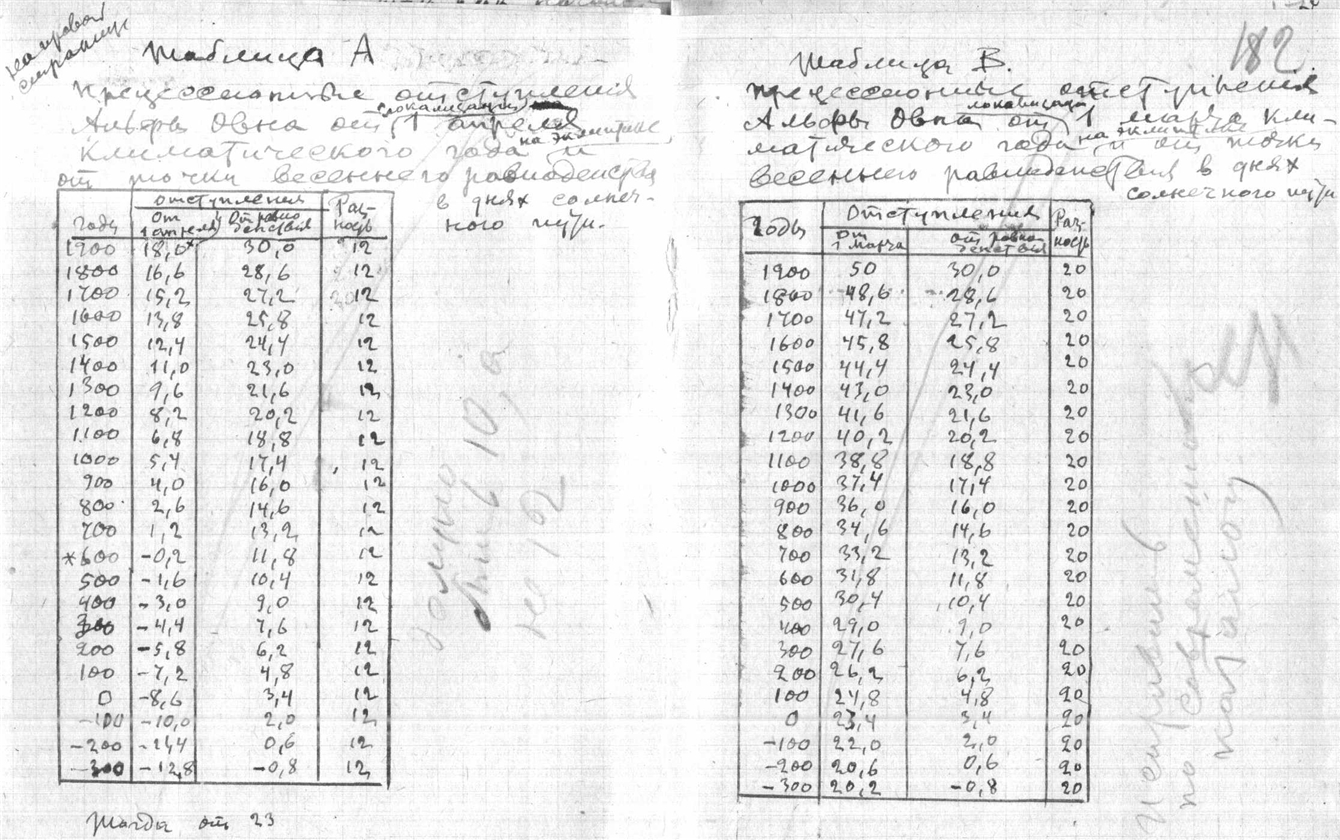 на правой
странице
Таблица А
Прецессионные отступления
локализации
Альфы Овна от 1 апреля
на эклиптике
климатического года и
от точки весеннего равноденствия
в днях солнеч-
ного пути.
Годы | Отступления | Раз-ность
От 1 апреля | От равноденствия
1900 18,0* 30,0 12
1800 16,6 28,6 12
1700 15,2 27,2 12
1600 13,8 25,8 12
1500 12,4 24,4 12
1400 11,0 23,0 12
1300 9,6 21,6 12
1200 8,2 20,2 12
1100 6,8 18,8 12
1000 5,4 17,4 12
900 4,0 16,0 12
800 2,6 14,6 12
700 1,2 13,2 12
*600 -0,2 11,8 12
500 -1,6 10,4 12
400 -3,0 9,0 12
300 -4,4 7,6 12
200 -5,8 6,2 12
100 -7,2 4,8 12
0 -8,6 3,4 12
-100 -10,0 2,0 12
-200 -11,4 0,6 12
-300 -12,8 -0,8 12
Тогда от 23
должно
быть 10, а
не 92
182
Таблица В.
Прецессионные отступления
локализации
Альфы Овна от 1 марта кли-
на эклиптике
матического года и от точки
весеннего равноденствия в днях
солнечного пути
Годы | Отступления | Раз-ность
От 1 марта | от равноденствия
1900 50 30,0 20
1800 48,6 28,6 20
1700 47,2 27,2 20
1600 45,8 25,8 20
1500 44,4 24,4 20
1400 43,0 23,0 20
1300 41,6 21,6 20
1200 40,2 20,2 20
1100 38,8 18,8 20
1000 37,4 17,4 20
900 36,0 16,0 20
800 34,6 14,6 20
700 33,2 13,2 20
600 31,8 11,8 20
500 30,4 10,4 20
400 29,0 9,0 20
300 27,6 7,6 20
200 26,2 6,2 20
100 24,8 4,8 20
0 23,4 3,4 20
-100 22,0 2,0 20
-200 20,6 0,6 20
-300 20,2 -0,8 20
Исправить
по современному
каталогу